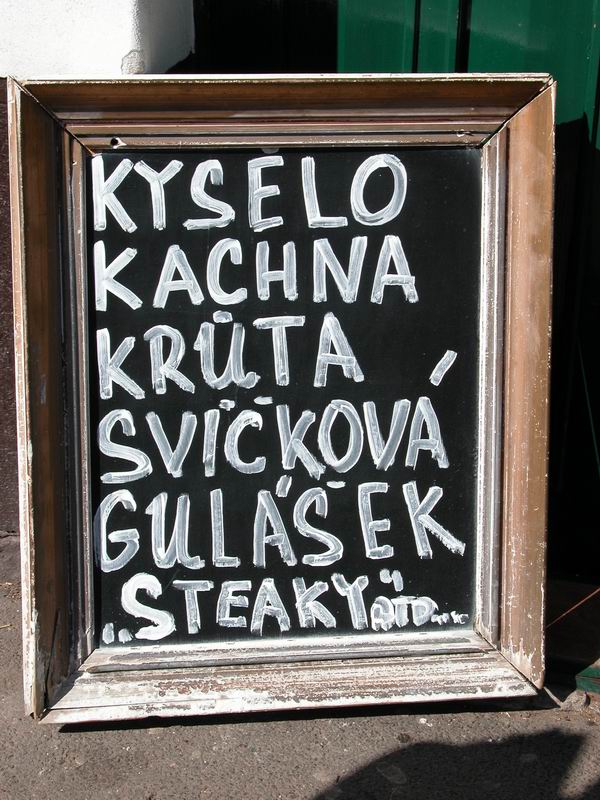 KYSELO
KACHNA
KRŮTA
SVÍČKOVÁ
GULÁŠEK
„STEAKY“ ATD....